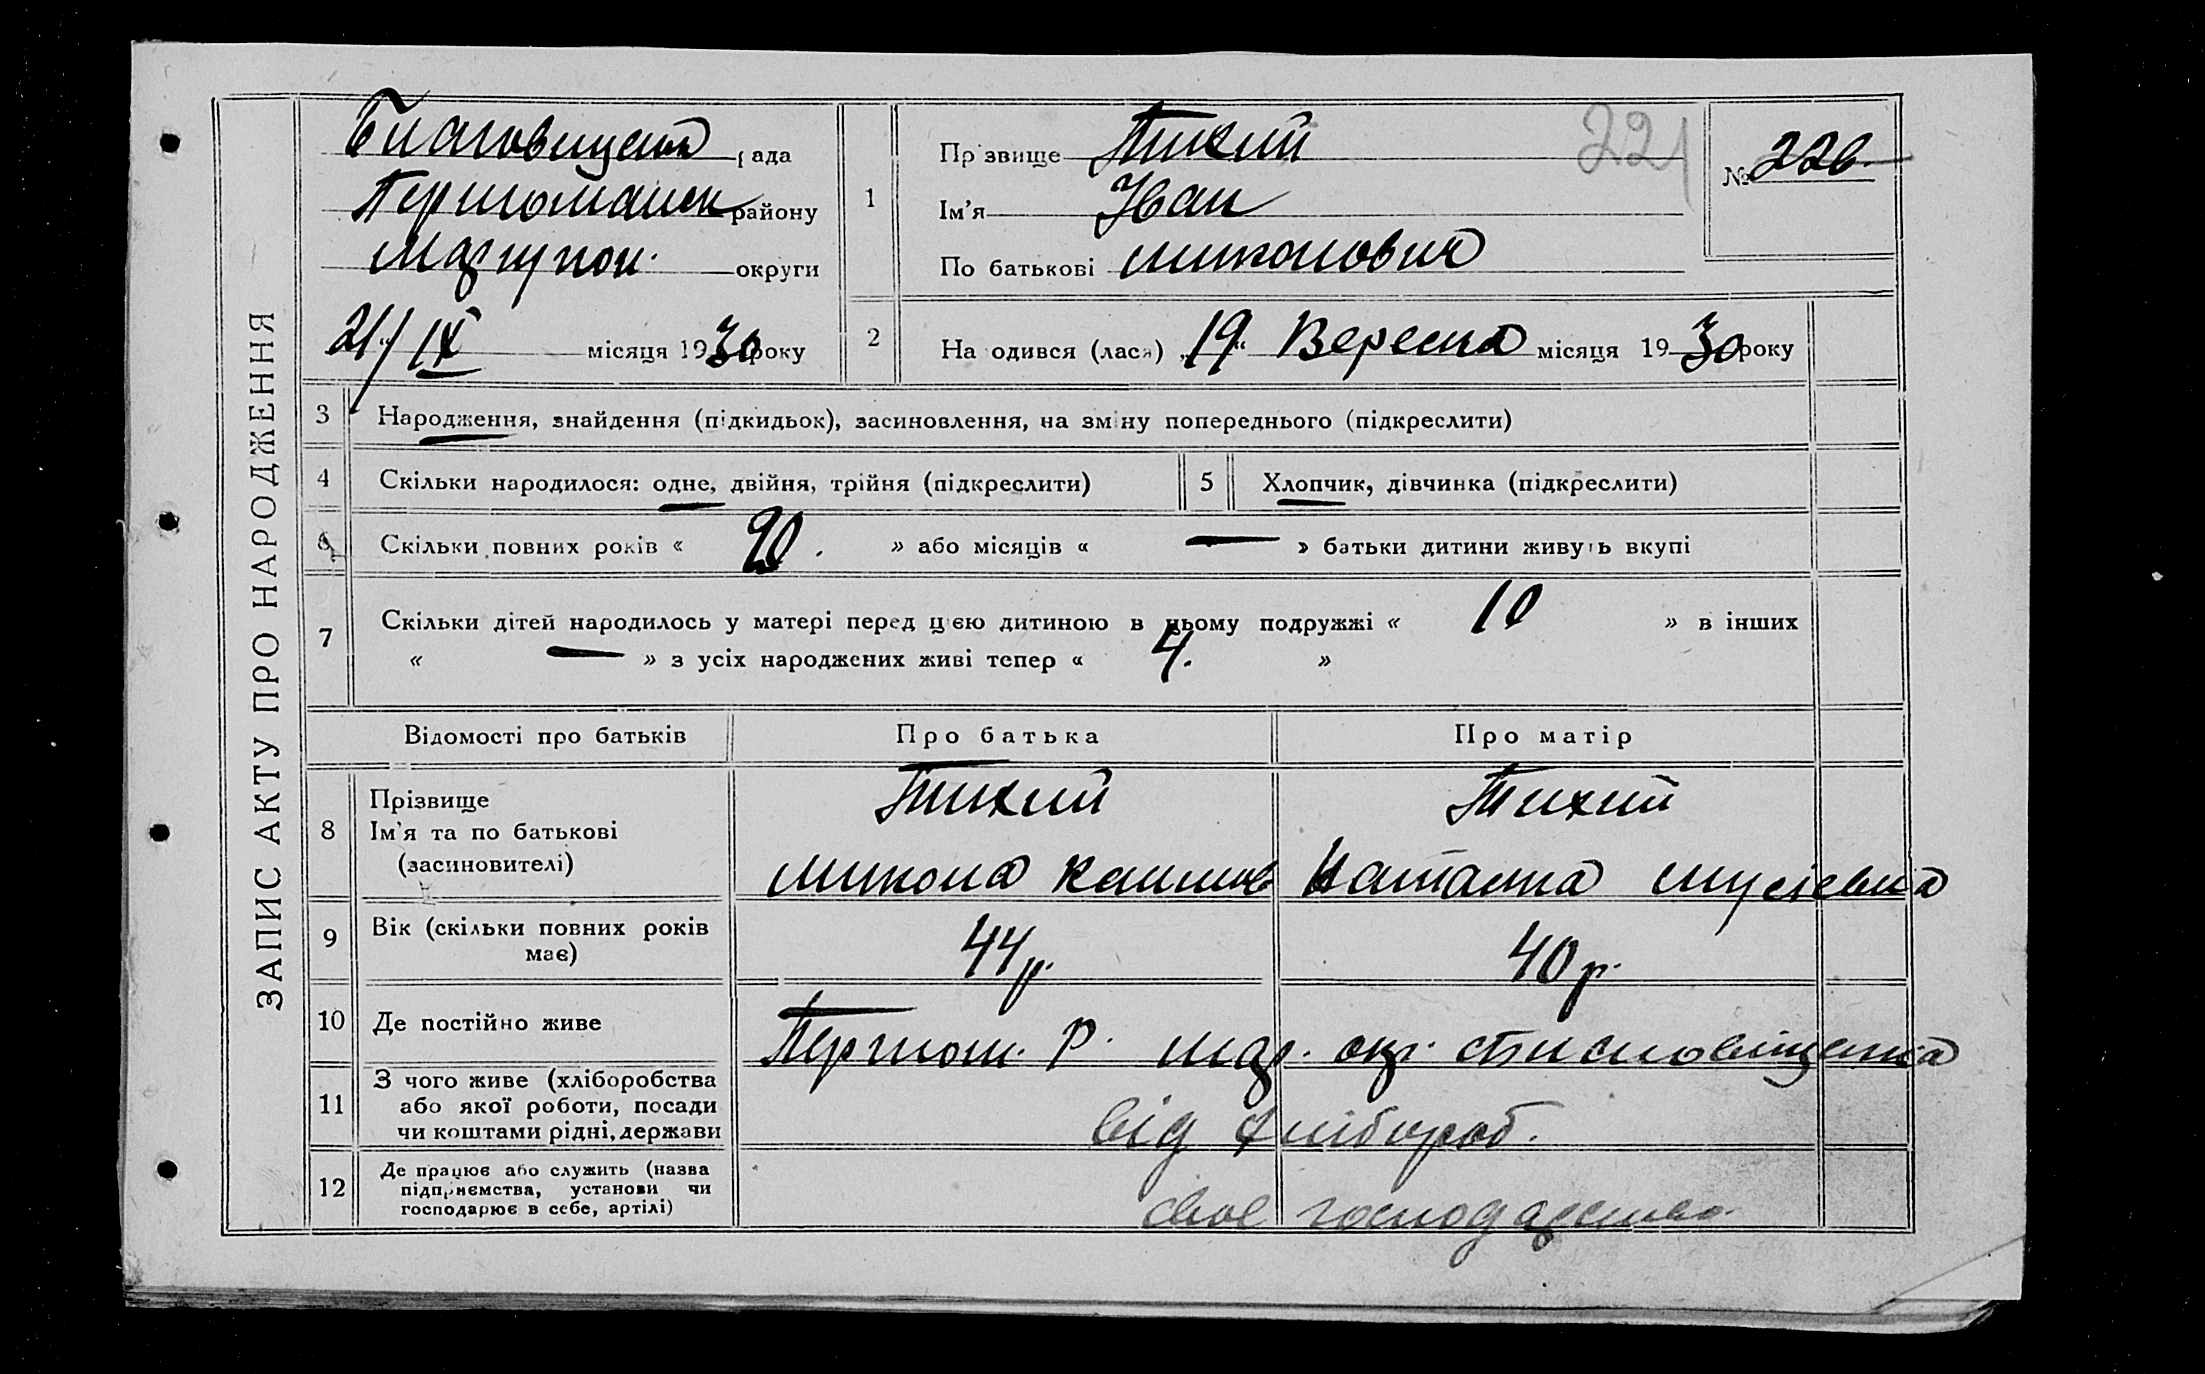 ЗАПИС АКТУ ПРО НАРОДЖЕННЯ
Благовіщен рада
Першомайск району
Маріупол. округи
21/IX місяця 1930 року
1
Прізвище Тихий
Ім'я Іван
По батькові Миколович
221
№ 226
2
Народився (лася) „19“ Вересня місяця 1930 року
3 Народження, знайдення (підкидьок), засиновлення, на зміну попереднього (підкреслити)
4 Скільки народилося: одне, двійня, трійня (підкреслити) 5 Хлопчик, дівчинка (підкреслити)
6 Скільки повних років « 20. » або місяців « — » батьки дитини живуть вкупі
7 Скільки дітей народилось у матері перед цією дитиною в цьому подружжі « 10 » в інших
« — » з усіх народжених живі тепер « 4. »
Відомості про батьків Про батька Про матір
8 Прізвище
Ім'я та по батькові
(засиновителі)
Тихий Тихий
Микола Наталка Мусієвна
9 Вік (скільки повних років має) 44 р. 40 р.
10 Де постійно живе Першом. Р. Мар. окр.
11 З чого живе (хліборобства
або якої роботи, посади
чи коштами рідні, держави
від хлібороб.
12 Де працює або служить (назва
підприємства, установи чи
господарює в себе, артілі)
своє господарство.